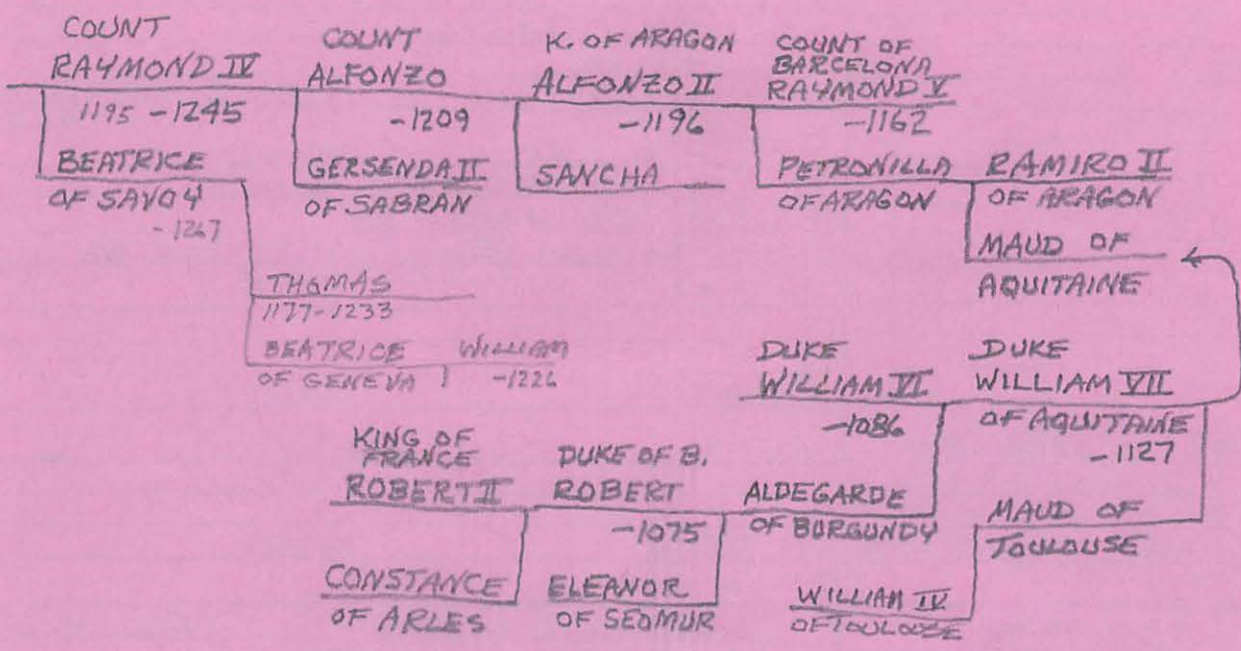 COUNT
RAYMOND IV
1195 - 1245
BEATRICE
OF SAVOY
- 1267
COUNT
ALFONZO
- 1209
GERSENDA II
OF SABRAN
K. OF ARAGON
ALFONZO II
- 1196
SANCHA
COUNT OF
BARCELONA
RAYMOND V
- 1162
PETRONILLA
OF ARAGON
RAMIRO II
OF ARAGON
MAUD OF
AQUITAINE
THOMAS
1177-1233
BEATRICE
OF GENEVA
WILLIAM
-1226
DUKE
WILLIAM VI
-1086
DUKE
WILLIAM VII
OF AQUITAINE
- 1127
KING OF
FRANCE
ROBERT II
CONSTANCE
OF ARLES
DUKE OF B.
ROBERT
-1075
ELEANOR
OF SEOMUR
ALDEGARDE
OF BURGUNDY
MAUD OF
TOULOUSE
WILLIAM IV
OF TOULOUSE